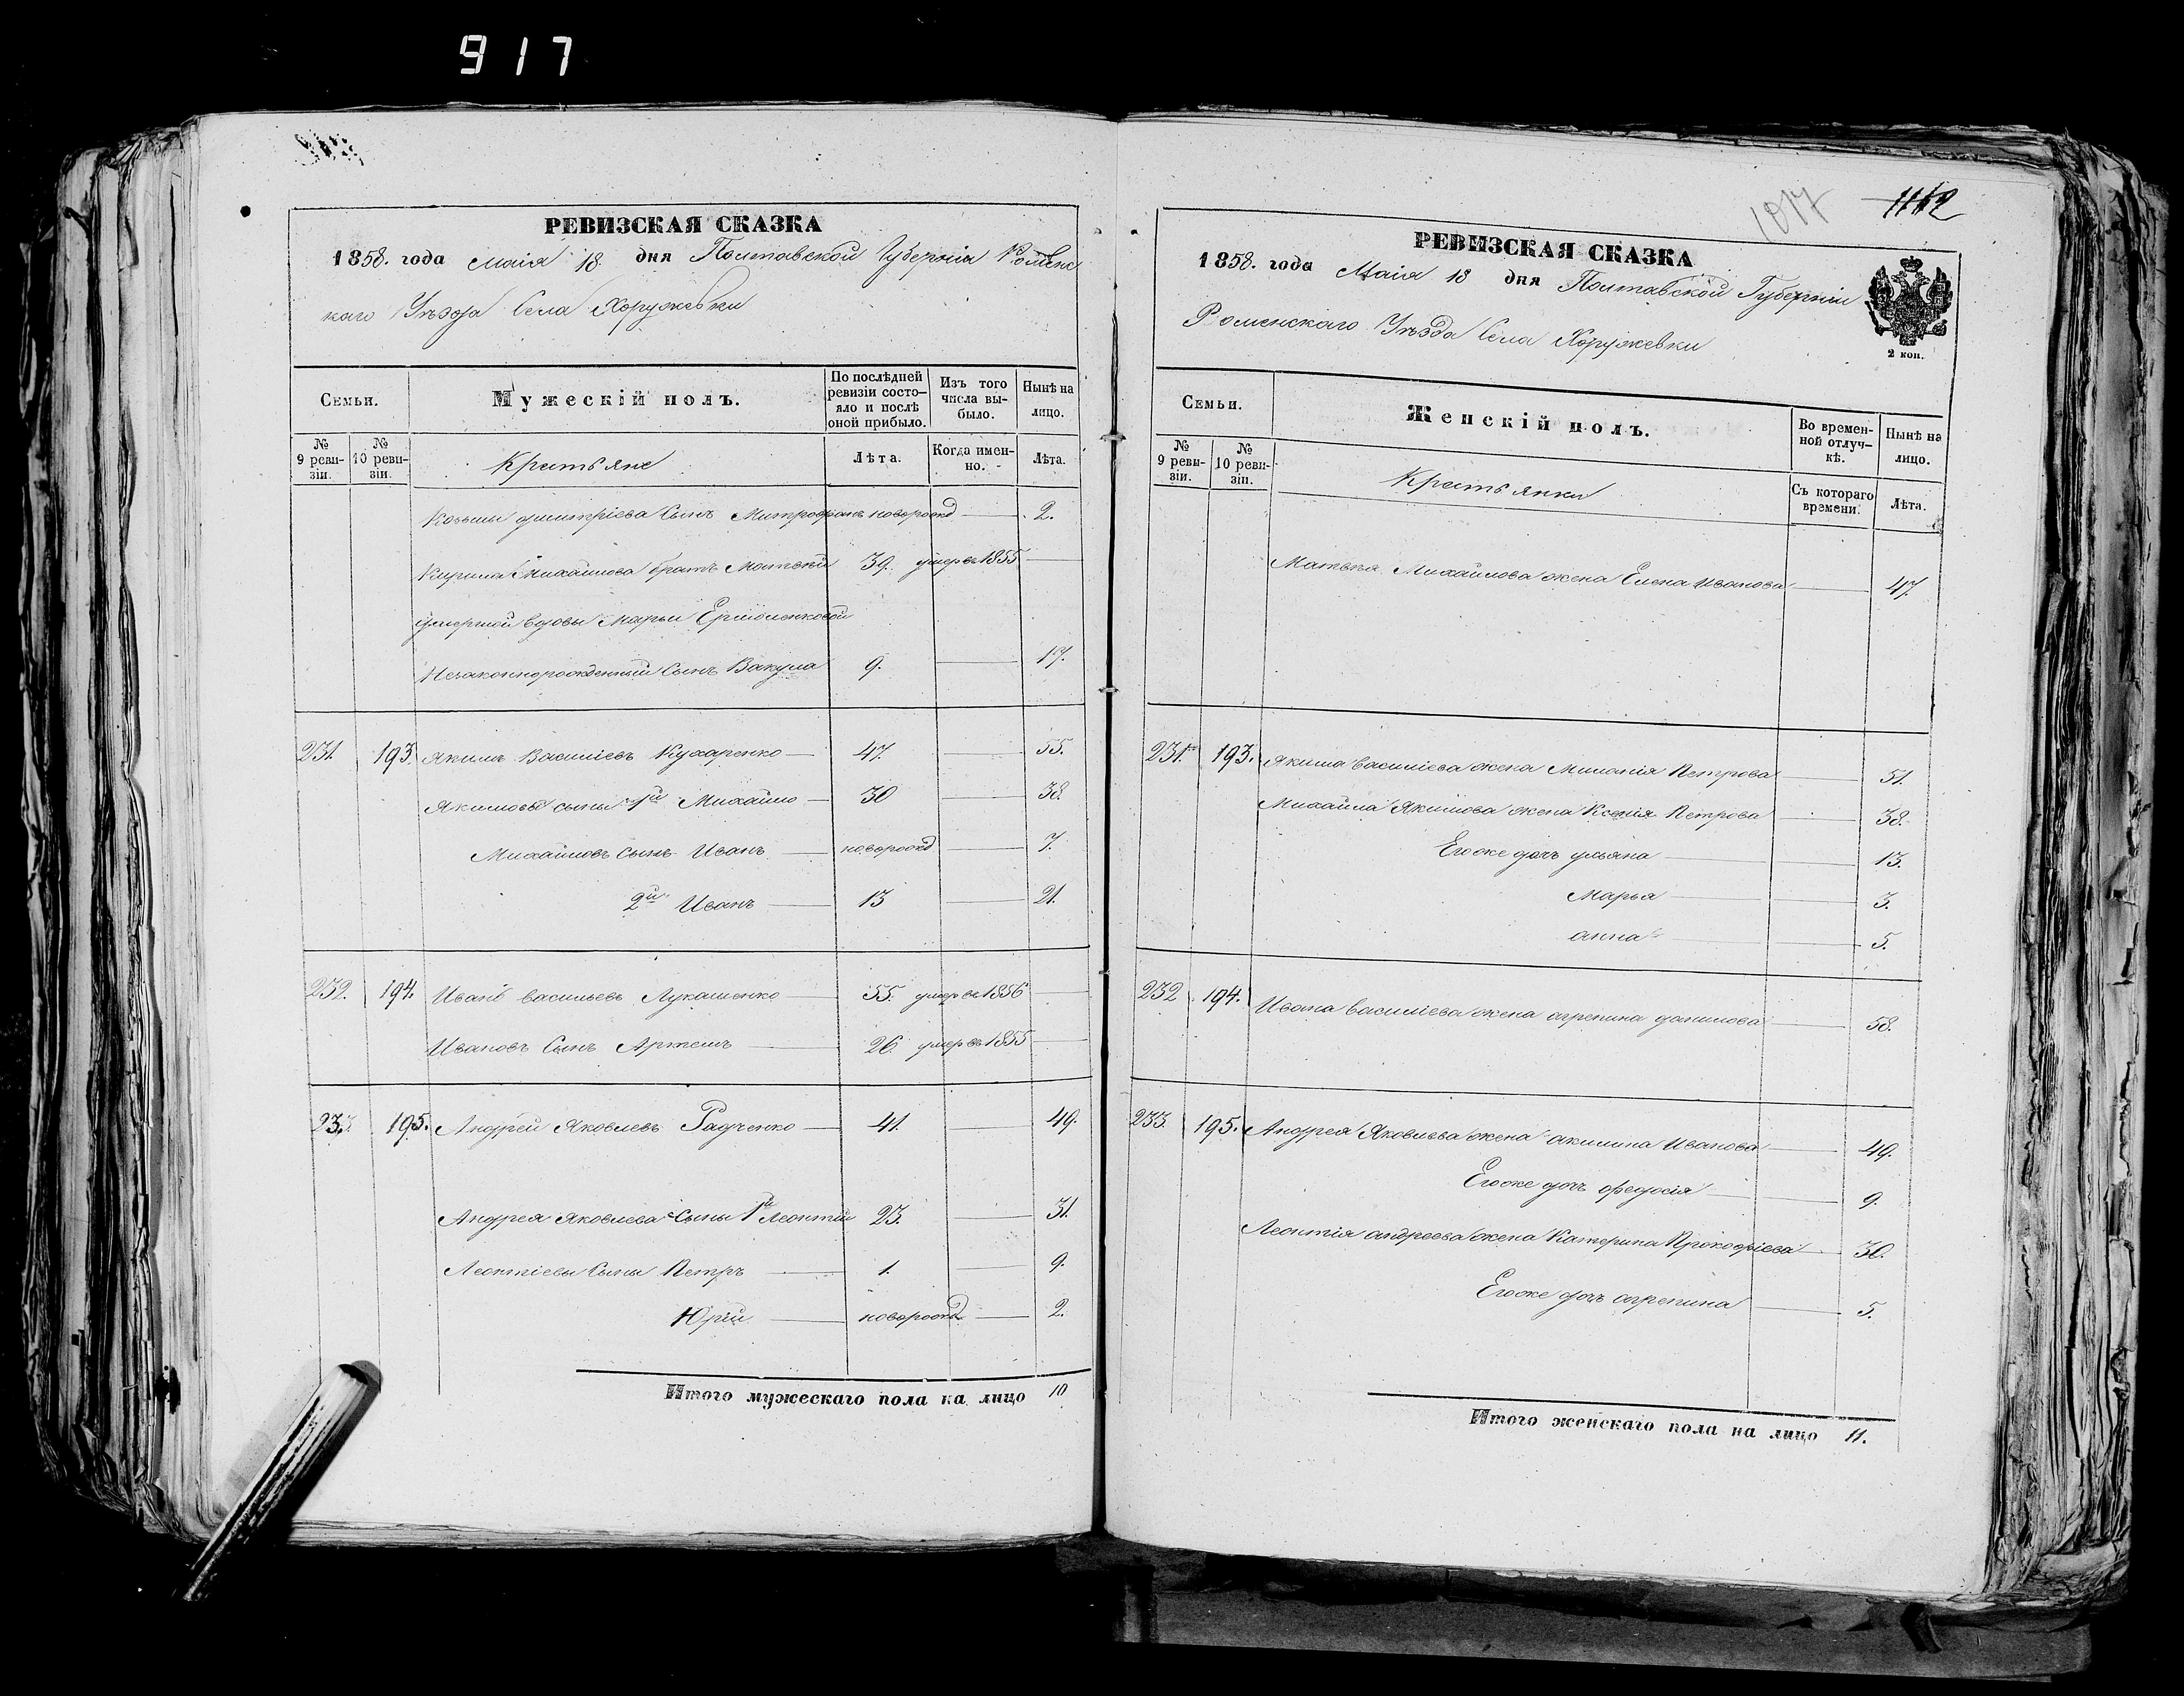 917
РЕВИЗСКАЯ СКАЗКА
1858. года Маія 18 дня Полтавской Губерніи Роменс
каго Уѣзда Села Хоружевки
Семьи.
Мужескій полъ.
По послѣдней ревизіи состо-
яло и послѣ
оной прибыло.
Изъ того
числа вы-
было.
Нынѣ на
лицо.
№
9 реви-
зіи.
№
10 реви-
зіи.
Крестьяне
Лѣта.
Когда имен-
но.
Лѣта.
Козьмы Дмитріева сынъ Митрофанъ новорожд 2.
Кирила Михайлова братъ Матвѣй 39. умеръ в 1855
умершой вдовы Марьи Ермоленковой
Незаконнорожденный сынъ Вакула 9. 17.
231. 193. Якимъ Василіевъ Кухаренко 47. 55.
Якимовы сыны 1й Михайло 30 38.
Михайловъ сынъ Иванъ новорожд 7.
2й Иванъ 13 21.
232. 194. Иванъ Васильевъ Лукашенко 55. умеръ в 1856
Ивановъ Сынъ Артемъ 26. умеръ в 1855
233. 195. Андрей Яковлевъ Радченко 41. 49.
Андрея Яковлева Сыны 1й Леонтій 23. 31.
Леонтіевы Сыны Петръ 1. 9.
Юрій новорожд 2.
Итого мужескаго пола на лицо 10
1017 1112
РЕВИЗСКАЯ СКАЗКА
1858. года Маія 18 дня Полтавской Губерніи
Роменскаго Уѣзда Села Хоружевки
2 коп.
Семьи.
Женскій полъ.
Во времен-
ной отлуч-
кѣ.
Нынѣ на
лицо.
№
9 реви-
зіи.
№
10 реви-
зіи.
Крестьянки
Съ котораго
времени.
Лѣта.
Матвѣя Михайлова жена Елена Иванова 47.
231. 193. Якима Василіева жена Миланія Петрова 51.
Михайла Якимова жена Ксенія Петрова 38.
Егоже дочь ульяна 13.
Марья 3.
анна 5.
232 194. Ивана Василіева жена агрепина данилова 58.
233. 195. Андрея Яковлева жена акилина Иванова 49.
Егоже дочь федосія 9.
Леонтія андреева жена Катерина Прокофіева 30.
Егоже дочь агрепина 5.
Итого женскаго пола на лицо 11.